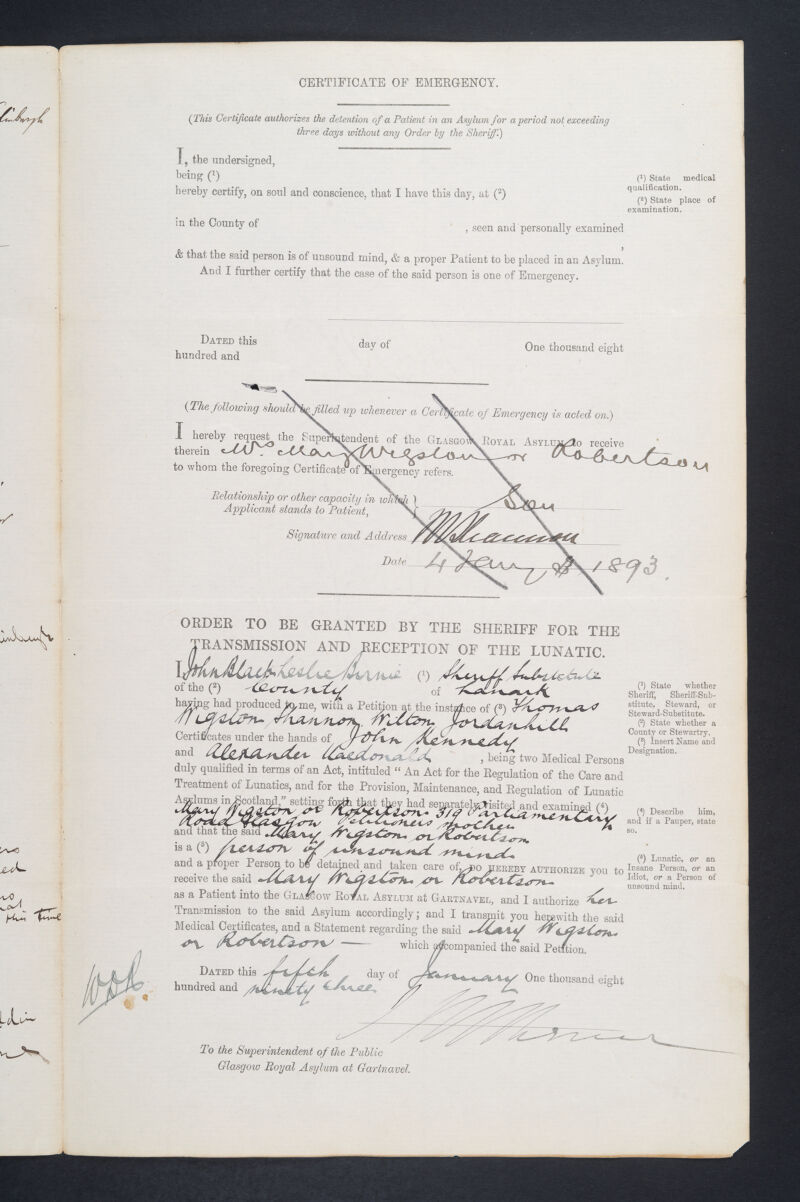 linburgh
CERTIFICATE OF EMERGENCY.
(This Certificate authorizes the detention of a Patient in an Asylum for a period not exceeding
three days without any Order by the Sheriff.)
I, the undersigned,
being (¹)
(¹) State medical
qualification.
hereby certify, on soul and conscience, that I have this day, at (²)
(²) State place of
examination.
in the County of , seen and personally examined
,
& that the said person is of unsound mind, & a proper Patient to be placed in an Asylum.
And I further certify that the case of the said person is one of Emergency.
DATED this day of One thousand eight
hundred and
(The following should be filled up whenever a Certificate of Emergency is acted on.)
I hereby request the Superintendent of the GLASGOW ROYAL ASYLUM to receive
therein Mrs Mary Wigston or Robertson
to whom the foregoing Certificate of Emergency refers.
Relationship or other capacity in which
Applicant stands to Patient, } Son
Signature and Address Shannon
Date 4 Jany 1893.
ORDER TO BE GRANTED BY THE SHERIFF FOR THE
TRANSMISSION AND RECEPTION OF THE LUNATIC.
I, John Black Leslie Birnie (¹) Sheriff Substitute
of the (²) County of Lanark
(¹) State whether
Sheriff, Sheriff-Sub-
stitute, Steward, or
Steward-Substitute.
(²) State whether a
County or Stewartry.
(³) Insert Name and
Designation.
having had produced to me, with a Petition at the instance of (³) Thomas
Wigston Shannon Wilton Jordanhill
Certificates under the hands of John Kennedy
and Alexander Macdonald , being two Medical Persons
duly qualified in terms of an Act, intituled "An Act for the Regulation of the Care and
Treatment of Lunatics, and for the Provision, Maintenance, and Regulation of Lunatic
Asylums in Scotland," setting forth that they had separately visited and examined (⁴)
Mary Wigston or Robertson 319 Parliamentary
Road Glasgow Petitioners mother
(⁴) Describe him,
and if a Pauper, state
so.
and that the said Mary Wigston or Robertson
is a (⁵) person of unsound mind
(⁵) Lunatic, or an
Insane Person, or an
Idiot, or a Person of
unsound mind.
and a proper Person to be detained and taken care of, DO HEREBY AUTHORIZE you to
receive the said Mary Wigston or Robertson
as a Patient into the GLASGOW ROYAL ASYLUM AT GARTNAVEL, and I authorize her
Transmission to the said Asylum accordingly; and I transmit you herewith the said
Medical Certificates, and a Statement regarding the said Mary Wigston
or Robertson — which accompanied the said Petition.
DATED this fifth day of January One thousand eight
hundred and ninety three
To the Superintendent of the Public
Glasgow Royal Asylum at Gartnavel.
this time